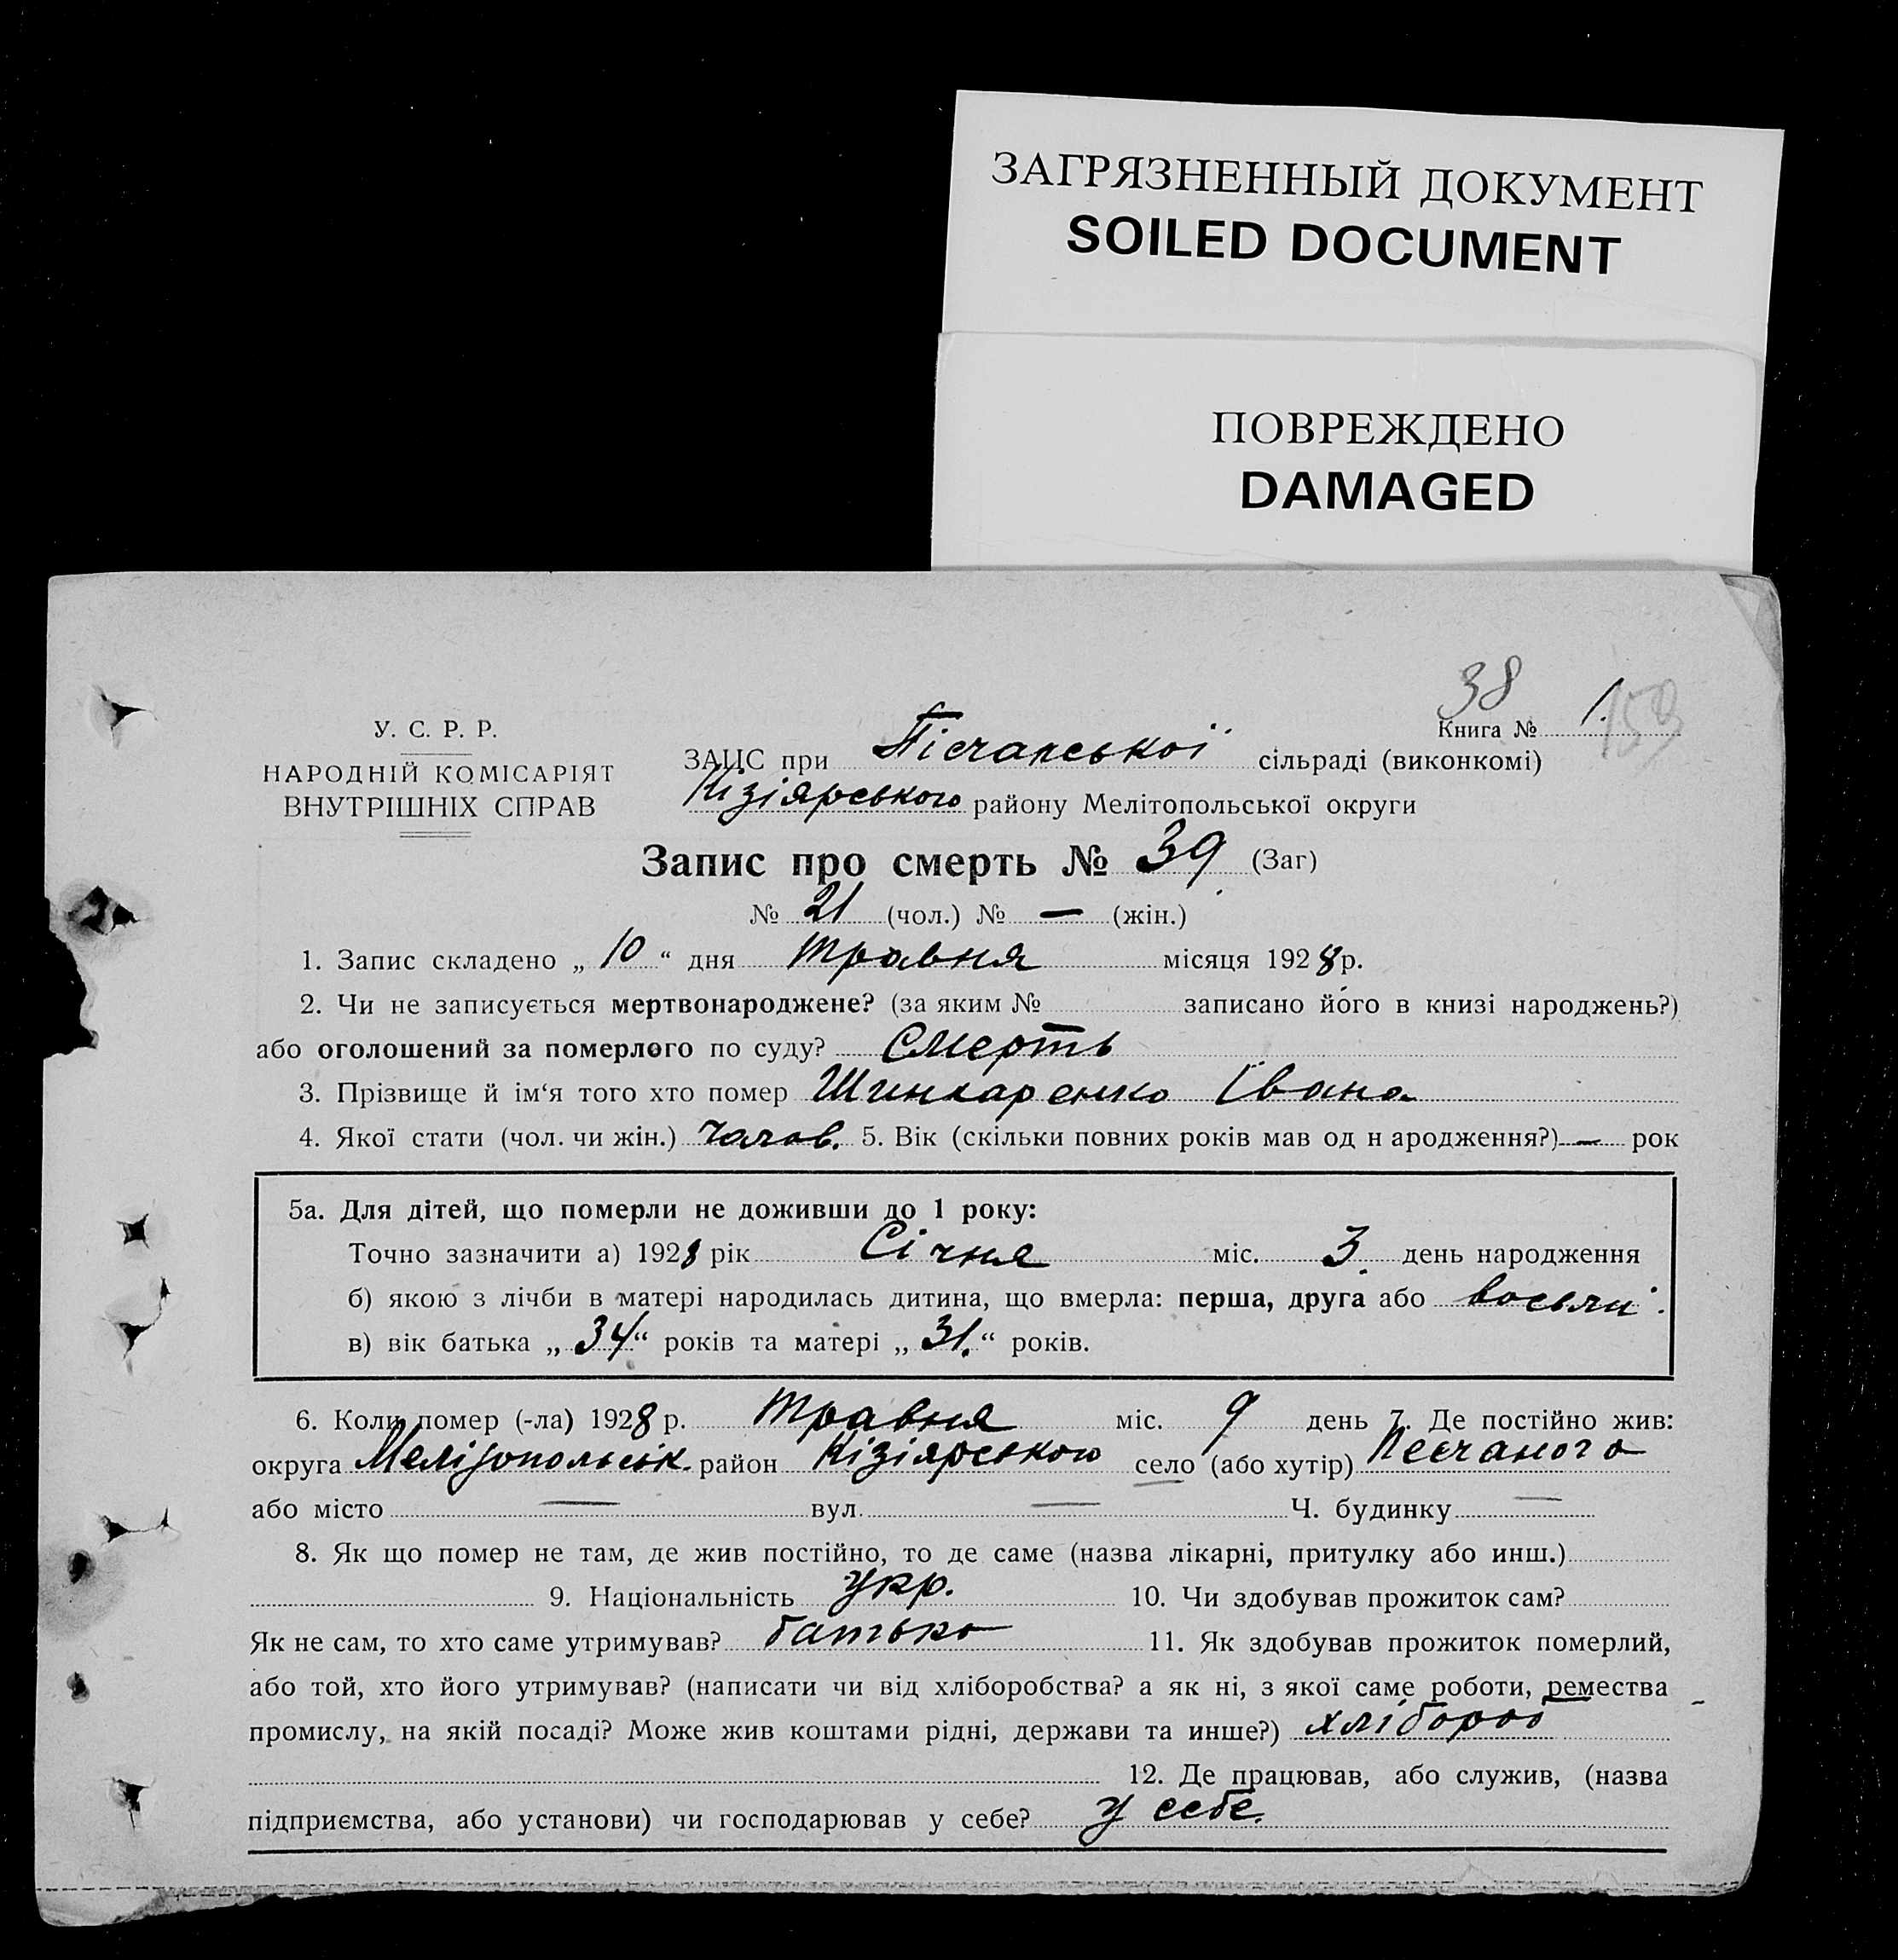 ЗАГРЯЗНЕННЫЙ ДОКУМЕНТ
SOILED DOCUMENT
ПОВРЕЖДЕНО
DAMAGED
38
У. С. Р. Р.
НАРОДНІЙ КОМІСАРІЯТ
ВНУТРІШНІХ СПРАВ
Книга № 1. 153
ЗАЦС при Пісчанської сільраді (виконкомі)
Кізіярського району Мелітопольської округи
Запис про смерть № 39 (Заг)
№ 21 (чол.) № — (жін.)
1. Запис складено „ 10 “ дня травня місяця 1928 р.
2. Чи не записується мертвонароджене? (за яким № записано його в книзі народжень?)
або оголошений за померлого по суду? Смерть
3. Прізвище й ім‘я того хто помер Шинкаренко Івана
4. Якої стати (чол. чи жін.) чолов. 5. Вік (скільки повних років мав од н ародження?) — рок
5а. Для дітей, що померли не доживши до 1 року:
Точно зазначити а) 1928 рік Січня міс. 3 день народження
б) якою з лічби в матері народилась дитина, що вмерла: перша, друга або
в) вік батька „ 34 “ років та матері „ 31. “ років.
6. Коли помер (-ла) 1928 р. травня міс. 9 день 7. Де постійно жив:
округа Мелітопольськ. район Кізіярського село (або хутір) Песчаного
або місто — вул. — Ч. будинку —
8. Як що помер не там, де жив постійно, то де саме (назва лікарні, притулку або инш.)
9. Національність укр. 10. Чи здобував прожиток сам?
Як не сам, то хто саме утримував? батько 11. Як здобував прожиток померлий,
або той, хто його утримував? (написати чи від хліборобства? а як ні, з якої саме роботи, ремества
промислу, на якій посаді? Може жив коштами рідні, держави та инше?) хлібороб
12. Де працював, або служив, (назва
підприємства, або установи) чи господарював у себе? у себе.